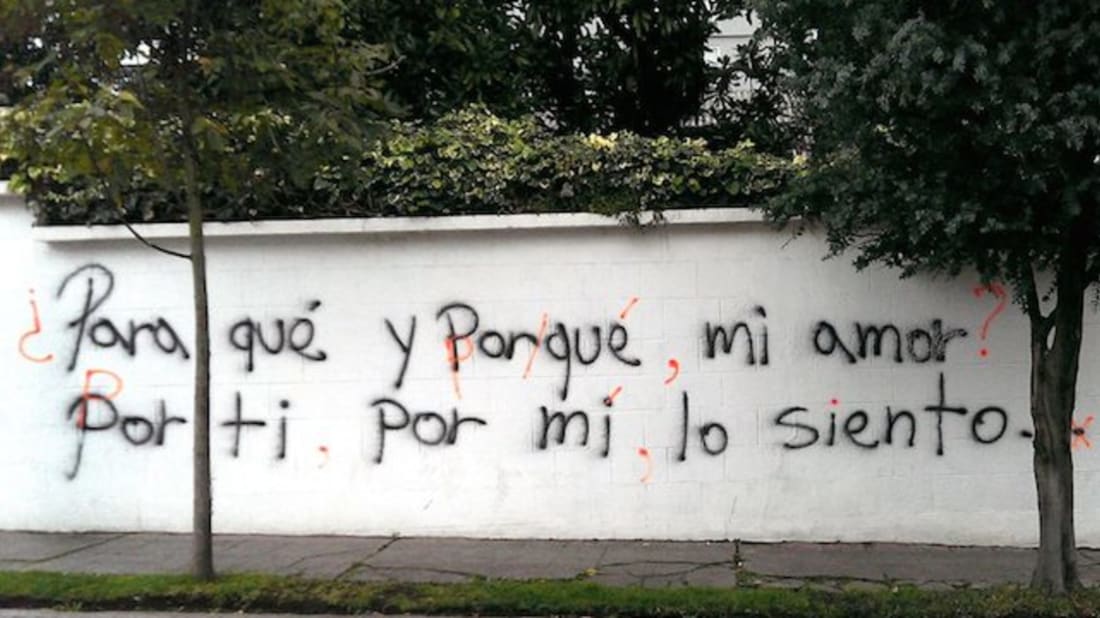 ¿Para qué y Por/qué, mi amor?
Por ti, por mí, lo siento.